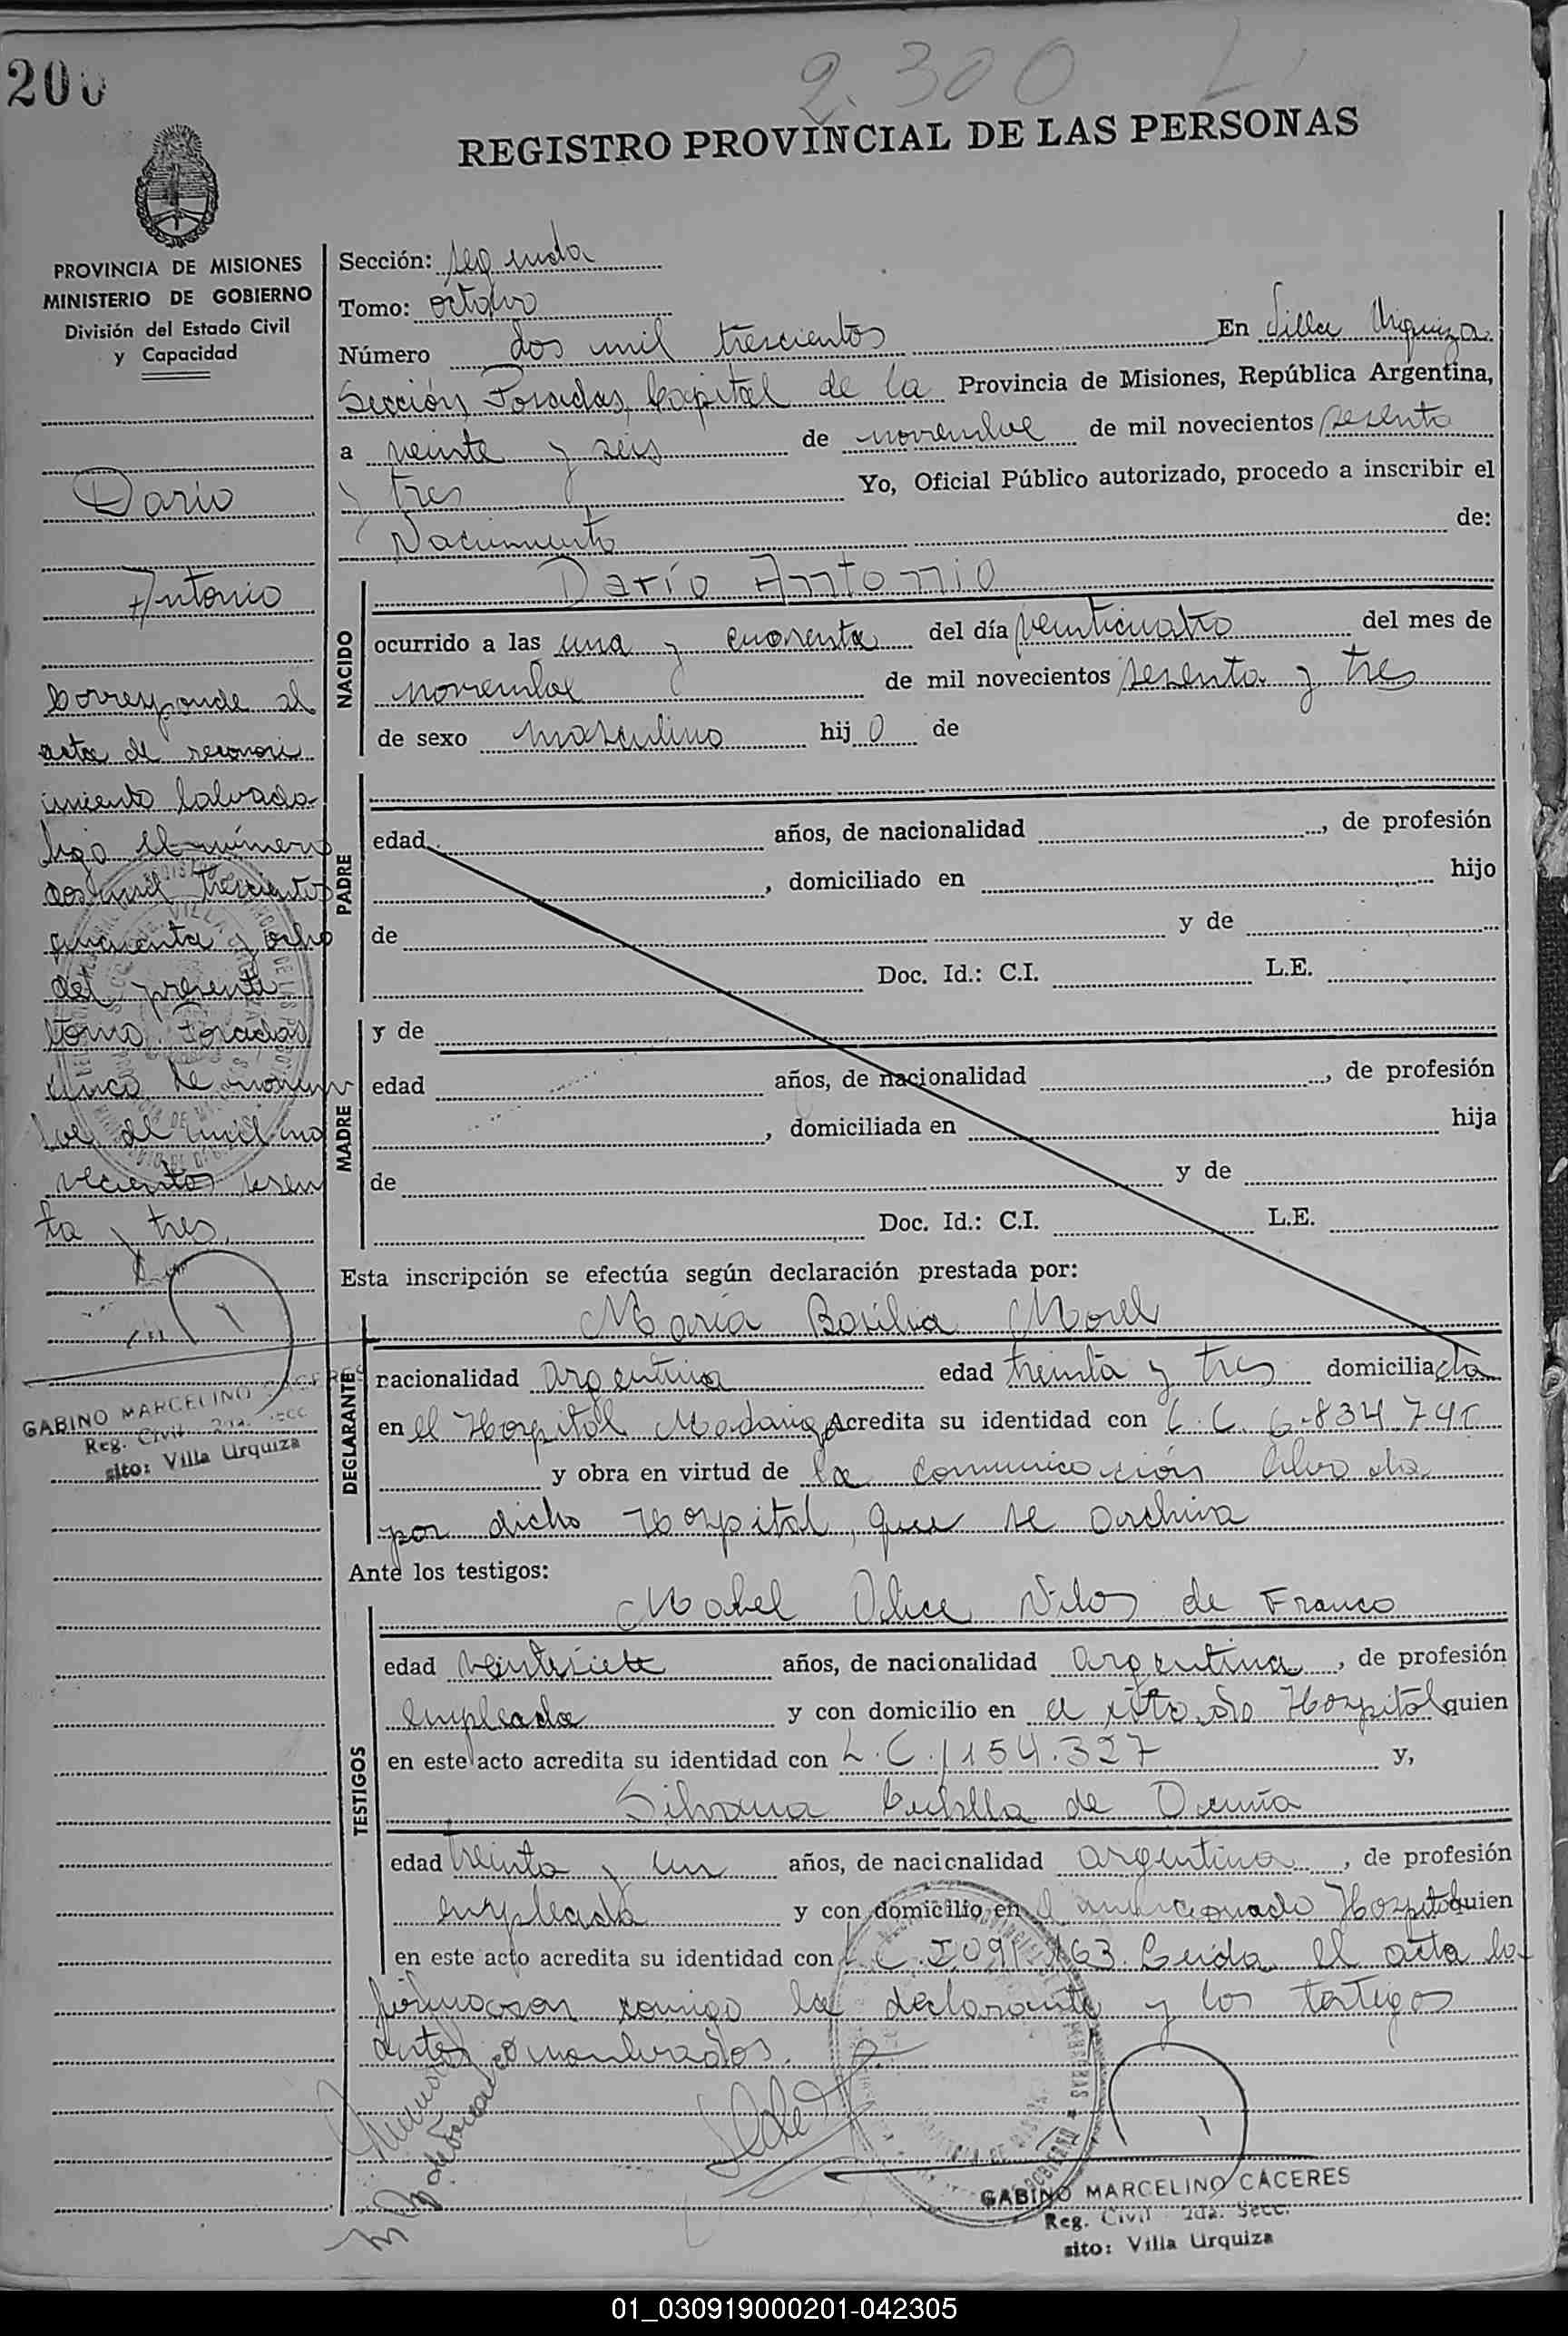 200
2.300
REGISTRO PROVINCIAL DE LAS PERSONAS
PROVINCIA DE MISIONES
MINISTERIO DE GOBIERNO
División del Estado Civil
y Capacidad
Dario
Antonio
Corresponde al
acta de reconoci
miento labrada
bajo el número
dos mil trescientos
cincuenta y ocho
del presente
tomo. Posadas
cinco de
de mil no
vecientos sesen
ta y tres.
GABINO MARCELINO CACERES
Reg. Civil 2da. Secc.
sito: Villa Urquiza
Sección: segunda
Tomo: octavo
Número dos mil trescientos En Villa Urquiza
Sección, Posadas, Capital de la Provincia de Misiones, República Argentina,
a veinte y seis de noviembre de mil novecientos sesenta
y tres Yo, Oficial Público autorizado, procedo a inscribir el
Nacimiento de:
NACIDO
Darío Antonio
ocurrido a las una y cuarenta del día veinticuatro del mes de
noviembre de mil novecientos sesenta y tres
de sexo masculino hijo de
PADRE
edad años, de nacionalidad , de profesión
, domiciliado en hijo
de y de
Doc. Id.: C.I. L.E.
MADRE
y de
edad años, de nacionalidad , de profesión
, domiciliada en hija
de y de
Doc. Id.: C.I. L.E.
Esta inscripción se efectúa según declaración prestada por:
DECLARANTE
María Basilia Morel
nacionalidad argentina edad treinta y tres domiciliada
en el Hospital Madariaga Acredita su identidad con L.C. 6.834.741
y obra en virtud de la comunicación librada
por dicho Hospital, que se archiva
Ante los testigos:
TESTIGOS
Mabel Alice de Franco
edad veintisiete años, de nacionalidad argentina, de profesión
empleada y con domicilio en el citado Hospital quien
en este acto acredita su identidad con L.C. 1154.327 y,
Silvana Cubilla de Acuña
edad treinta y un años, de nacionalidad argentina, de profesión
empleada y con domicilio en el mencionado Hospital quien
en este acto acredita su identidad con L.C. 163. Leída el acta la
firmaron conmigo la declarante y los testigos
antes nombrados.
GABINO MARCELINO CACERES
Reg. Civil 2da. Secc.
sito: Villa Urquiza
01_030919000201-042305